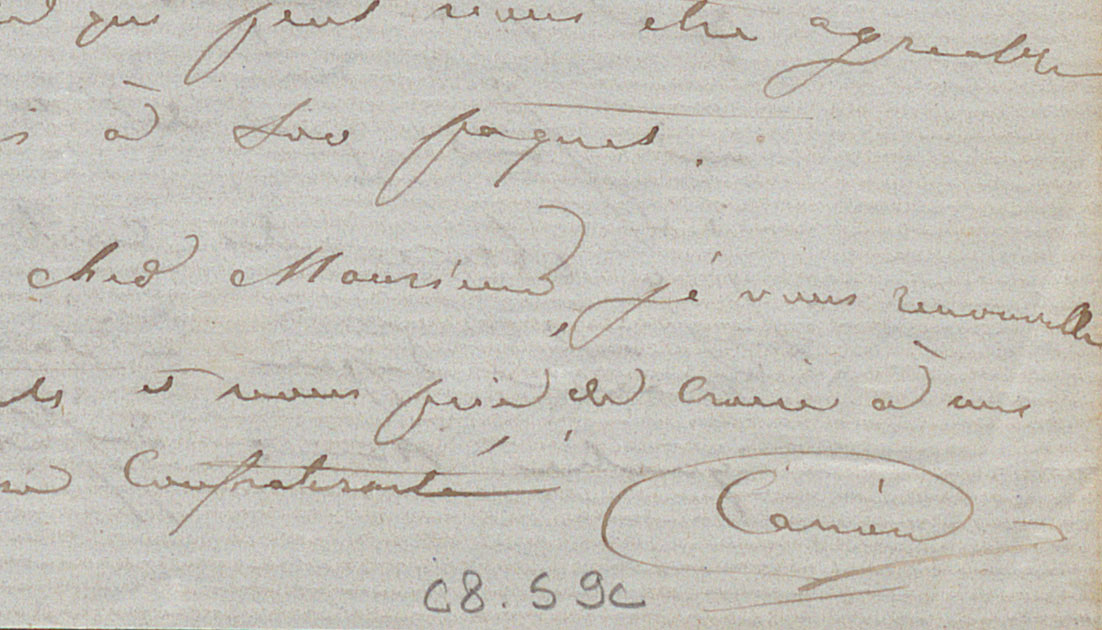 qui peut vous etre agreable
à son paquet.
cher Monsieur, je vous renouvelle
et vous prie de croire à
Confraternité Carrier
C8.59c